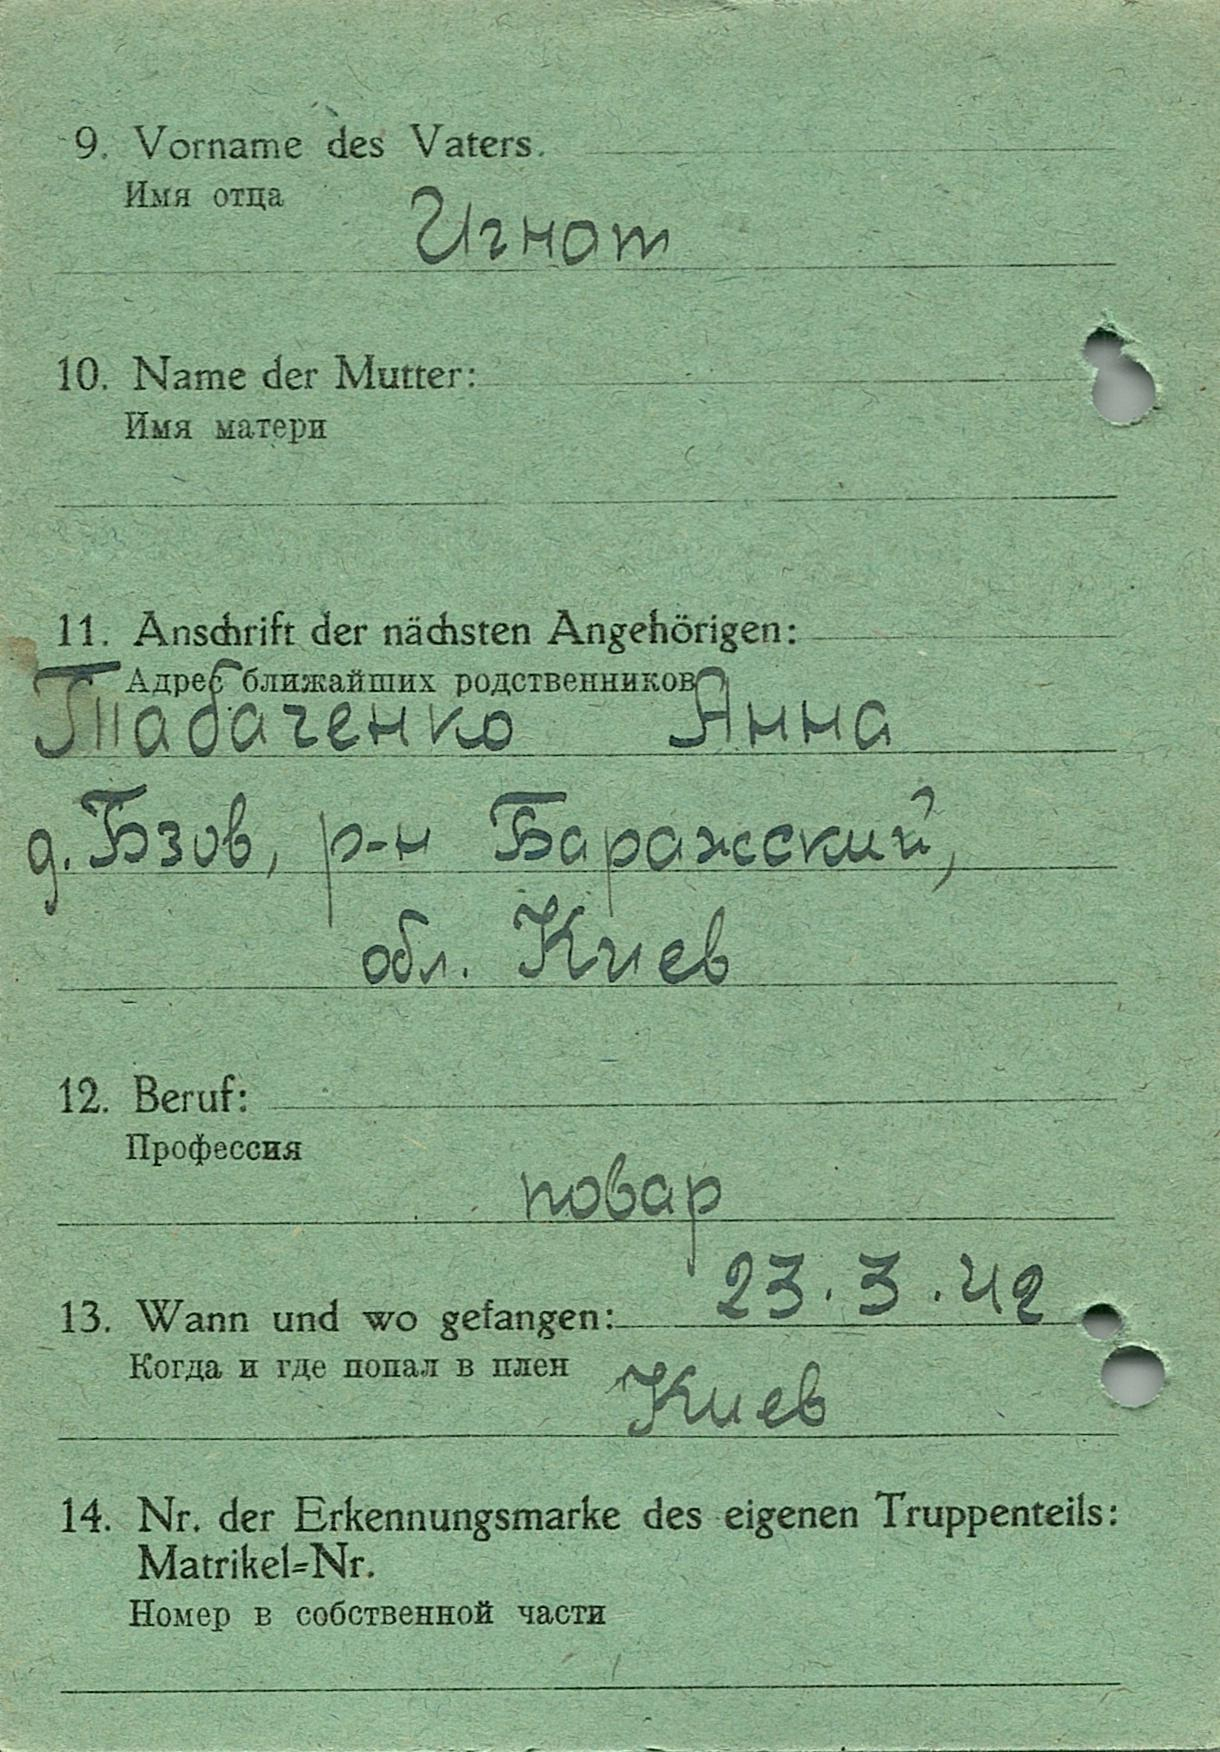 9. Vorname des Vaters.
Имя отца
Игнот
10. Name der Mutter:
Имя матери
11. Anschrift der nächsten Angehörigen:
Адрес ближайших родственников
Табаченко Анна
д. Бзов, р-н Баражский,
обл. Киев
12. Beruf:
Профессия
повар
23.3.42
13. Wann und wo gefangen:
Когда и где попал в плен
Киев
14. Nr. der Erkennungsmarke des eigenen Truppenteils:
Matrikel=Nr.
Номер в собственной части